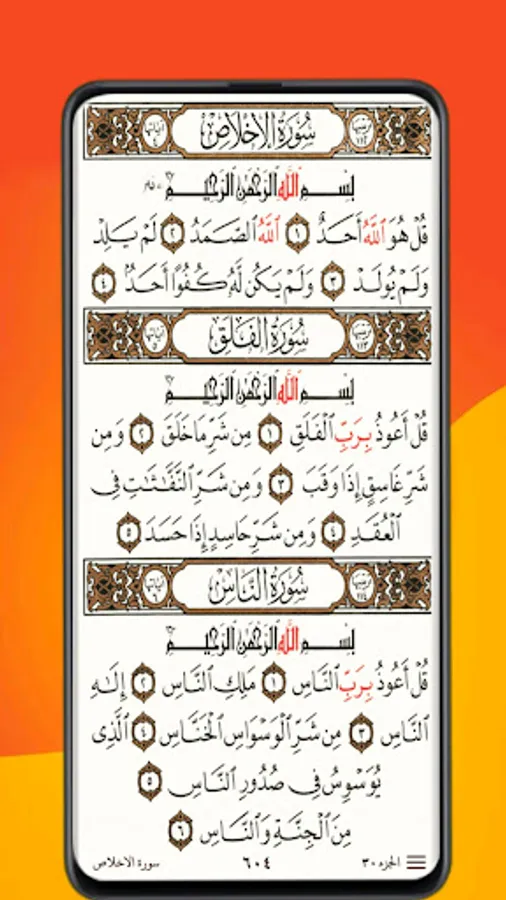 ترتيبها ١١٢ سُورَةُ الإِخْلَاصِ آياتها ٤
بِسْمِ اللَّهِ الرَّحْمَٰنِ الرَّحِيمِ
قُلْ هُوَ اللَّهُ أَحَدٌ ١ اللَّهُ الصَّمَدُ ٢ لَمْ يَلِدْ
وَلَمْ يُولَدْ ٣ وَلَمْ يَكُن لَّهُ كُفُوًا أَحَدٌ ٤
ترتيبها ١١٣ سُورَةُ الفَلَقِ آياتها ٥
بِسْمِ اللَّهِ الرَّحْمَٰنِ الرَّحِيمِ
قُلْ أَعُوذُ بِرَبِّ الْفَلَقِ ١ مِن شَرِّ مَا خَلَقَ ٢ وَمِن
شَرِّ غَاسِقٍ إِذَا وَقَبَ ٣ وَمِن شَرِّ النَّفَّاثَاتِ فِي
الْعُقَدِ ٤ وَمِن شَرِّ حَاسِدٍ إِذَا حَسَدَ ٥
ترتيبها ١١٤ سُورَةُ النَّاسِ آياتها ٦
بِسْمِ اللَّهِ الرَّحْمَٰنِ الرَّحِيمِ
قُلْ أَعُوذُ بِرَبِّ النَّاسِ ١ مَلِكِ النَّاسِ ٢ إِلَٰهِ
النَّاسِ ٣ مِن شَرِّ الْوَسْوَاسِ الْخَنَّاسِ ٤ الَّذِي
يُوَسْوِسُ فِي صُدُورِ النَّاسِ ٥
مِنَ الْجِنَّةِ وَالنَّاسِ ٦
الجزء ٣٠ ٦٠٤ سورة الاخلاص